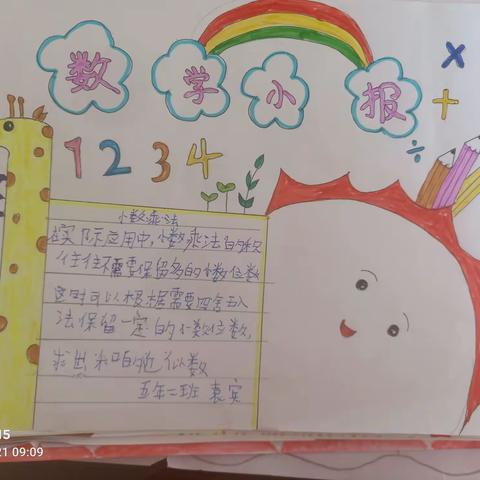 数学小报
×
+
÷
1 2 3 4
小数乘法
在实际应用中,小数乘法的积
往往不需要保留多的小数位数
这时可以根据需要四舍五入
法保留一定的小数位数,
求出积的近似数
五年二班 袁实
15
21 09:09